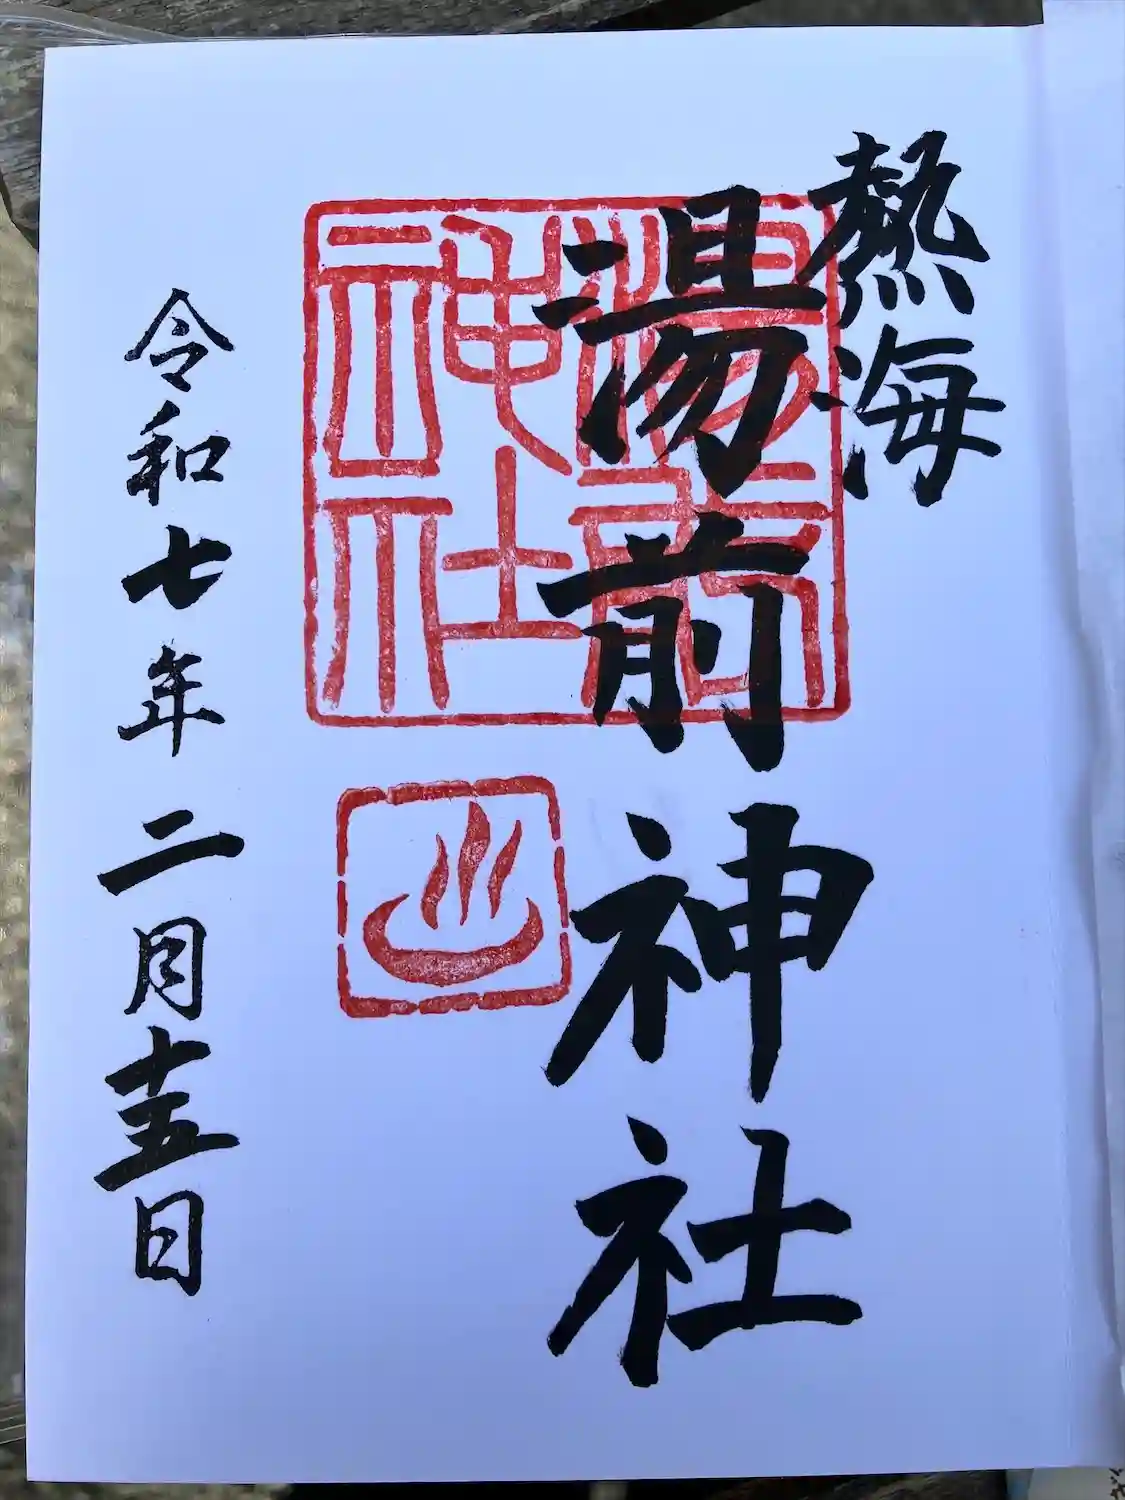 熱海
湯前神社
湯前
神社
令和七年二月十五日